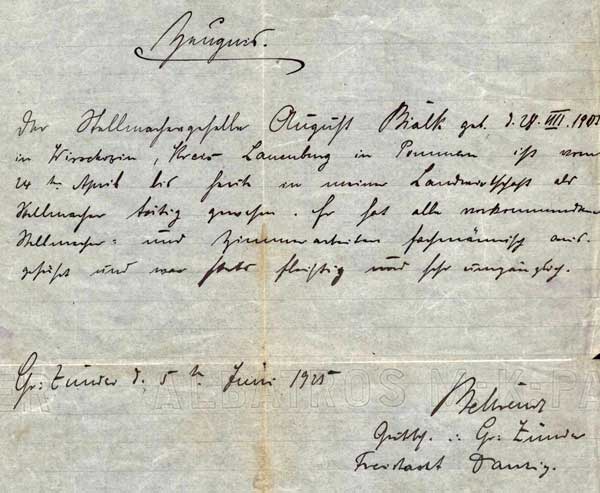 Zeugnis.
Der Stellmachergeselle August Bialk geb. d. 28. VIII. 190
in Wierschozin, Kreis Lauenburg in Pommern ist vom
24 ten April bis heute in meiner Landwirtschaft als
Stellmacher tätig gewesen. Er hat alle vorkommenden
Stellmacher- und Zimmerarbeiten fachmännisch aus-
geführt und war stets fleißig und sehr umgänglich.
Gr. Zünder d. 5 ten Juni 1925
Behrendt
Gutsb. Gr. Zünder
Freistaat Danzig.